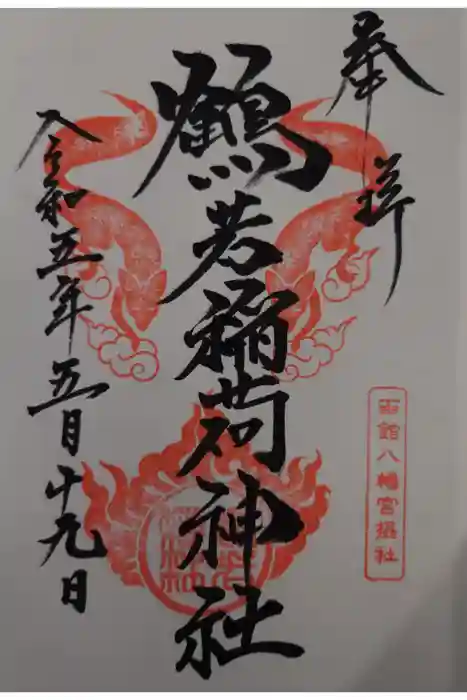 奉拝
鶴若稲荷神社
函館八幡宮摂社
令和五年五月十九日